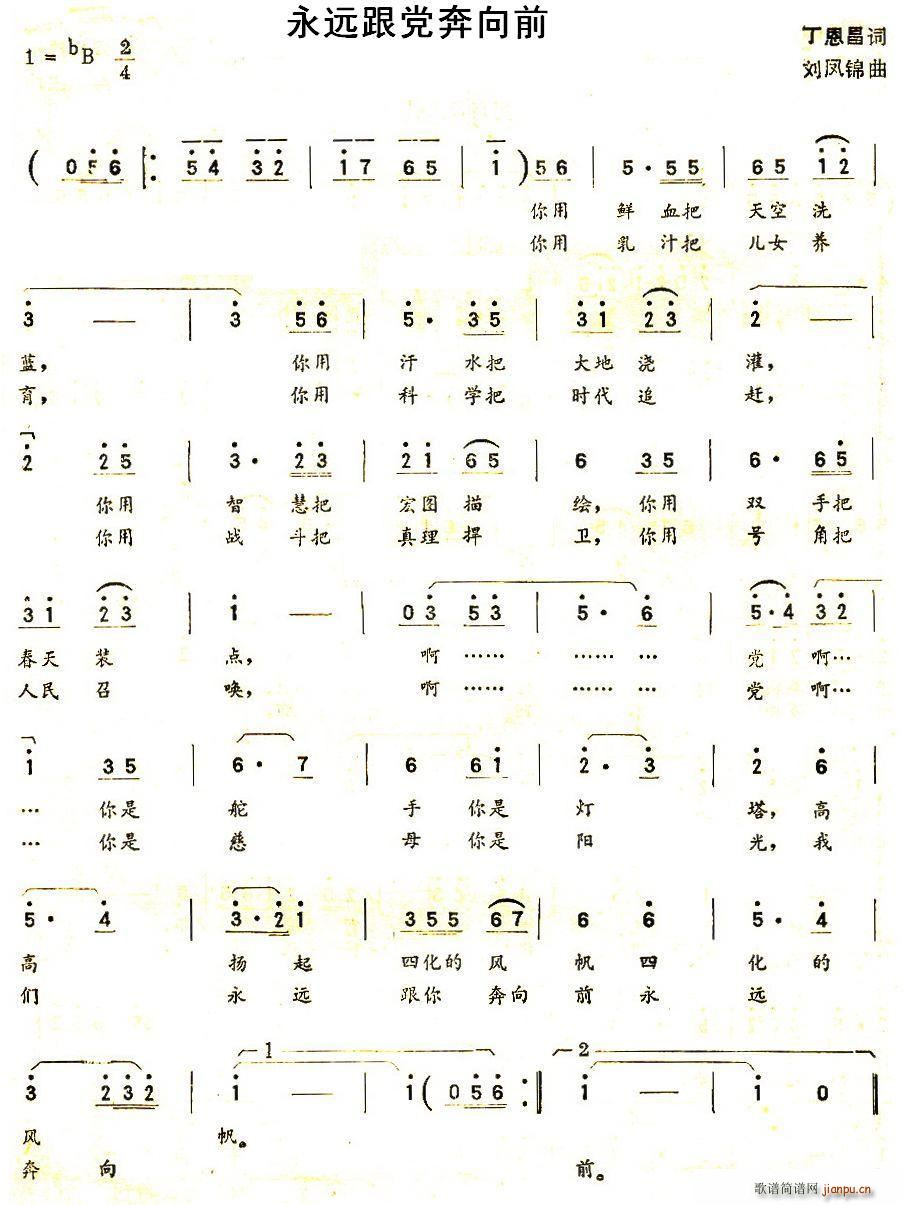 永远跟党奔向前
1 = bB 2/4
丁恩昌词
刘凤锦曲
( 0 5 6 : 5 4 3 2 | 1 7 6 5 | 1 ) 5 6 | 5 · 5 5 | 6 5 1 2 |
你用 鲜 血把 天空 洗
你用 乳 汁把 儿女 养
3 — | 3 5 6 | 5 · 3 5 | 3 1 2 3 | 2 — |
蓝， 你用 汗 水把 大地 浇 灌，
育， 你用 科 学把 时代 追 赶，
2 2 5 | 3 · 2 3 | 2 1 6 5 | 6 3 5 | 6 · 6 5 |
你用 智 慧把 宏图 描 绘，你用 双 手把
你用 战 斗把 真理 捍 卫，你用 号 角把
3 1 2 3 | 1 — | 0 3 5 3 | 5 · 6 | 5 · 4 3 2 |
春天 装 点， 啊…… …… …… 党 啊…
人民 召 唤， 啊…… …… …… 党 啊…
1 3 5 | 6 · 7 | 6 6 1 | 2 · 3 | 2 6 |
… 你是 舵 手 你是 灯 塔，高
… 你是 慈 母 你是 阳 光，我
5 · 4 | 3 · 2 1 | 3 5 5 6 7 | 6 6 | 5 · 4 |
高 扬 起 四化的 风 帆 四 化 的
们 永 远 跟你 奔向 前 永 远
1 2
3 2 3 2 | 1 — | 1 ( 0 5 6 : 1 — | 1 0
风 帆。
奔 向 前。
歌谱简谱网 jianpu.cn